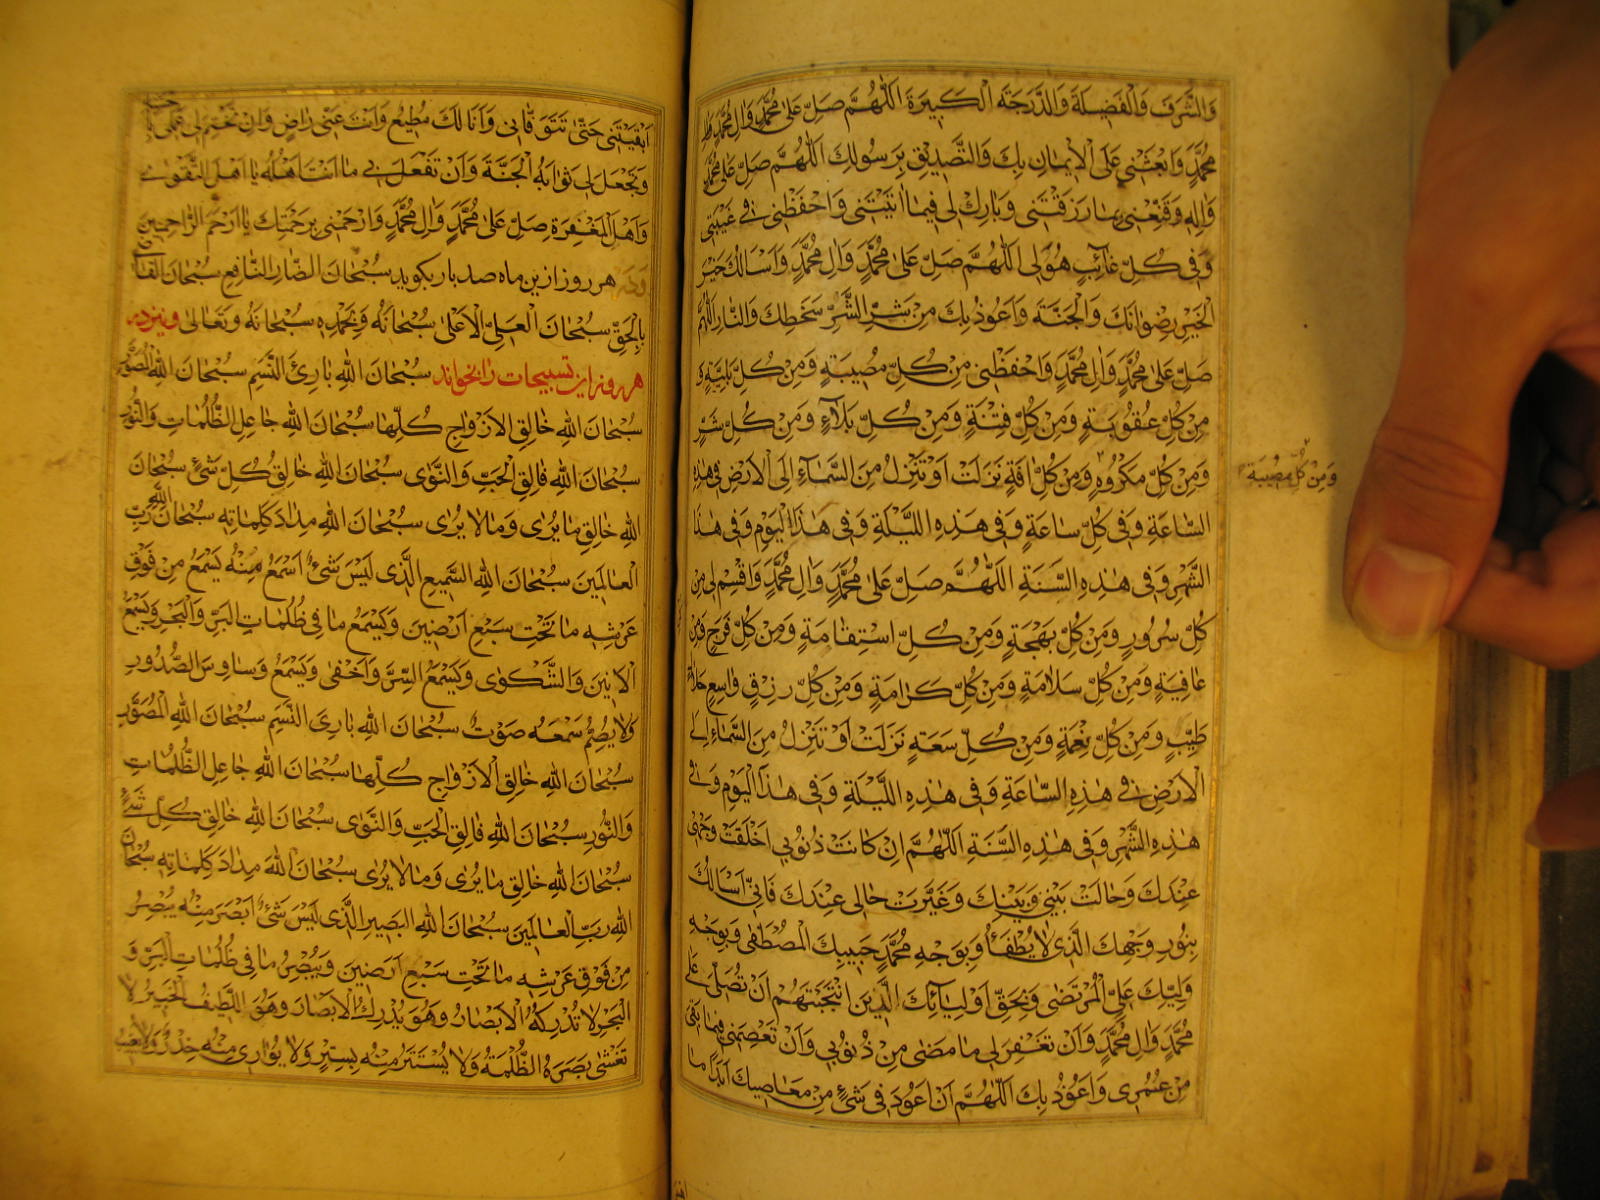 وَالشَّرَفَ وَالْفَضِيلَةَ وَالدَّرَجَةَ الْكَبِيرَةَ اَللّٰهُمَّ صَلِّ عَلىٰ مُحَمَّدٍ وَاٰلِ مُحَمَّدٍ
مُحَمَّدٍ وَابْعَثْنِي عَلَى الْاِيمٰانِ بِكَ وَالتَّصْدِيقِ بِرَسُولِكَ اَللّٰهُمَّ صَلِّ عَلىٰ مُحَمَّدٍ
وَاٰلِهِ وَقَنِّعْنِي بِمٰا رَزَقْتَنِي وَبٰارِكْ لِي فِيمٰا اٰتَيْتَنِي وَاحْفَظْنِي فِي غَيْبَتِي
وَفِي كُلِّ غٰائِبٍ هُوَ لِي اَللّٰهُمَّ صَلِّ عَلىٰ مُحَمَّدٍ وَاٰلِ مُحَمَّدٍ وَاَسْاَلُكَ خَيْرَ
الْخَيْرِ رِضْوٰانَكَ وَالْجَنَّةَ وَاَعُوذُ بِكَ مِنْ شَرِّ الشَّرِّ سَخَطِكَ وَالنّٰارِ اَللّٰهُمَّ
صَلِّ عَلىٰ مُحَمَّدٍ وَاٰلِ مُحَمَّدٍ وَاحْفَظْنِي مِنْ كُلِّ مُصِيبَةٍ وَمِنْ كُلِّ بَلِيَّةٍ وَ
مِنْ كُلِّ عُقُوبَةٍ وَمِنْ كُلِّ فِتْنَةٍ وَمِنْ كُلِّ بَلٰاءٍ وَمِنْ كُلِّ شَرٍّ
وَمِنْ كُلِّ مَكْرُوهٍ وَمِنْ كُلِّ اٰفَةٍ نَزَلَتْ اَوْ تَنْزِلُ مِنَ السَّمٰاءِ اِلَى الْاَرْضِ فِي هٰذِهِ
وَمِنْ كُلِّ مُصِيبَةٍ
السّٰاعَةِ وَفِي كُلِّ سٰاعَةٍ وَفِي هٰذِهِ اللَّيْلَةِ وَفِي هٰذَا الْيَوْمِ وَفِي هٰذَا
الشَّهْرِ وَفِي هٰذِهِ السَّنَةِ اَللّٰهُمَّ صَلِّ عَلىٰ مُحَمَّدٍ وَاٰلِ مُحَمَّدٍ وَاقْسِمْ لِي مِنْ
كُلِّ سُرُورٍ وَمِنْ كُلِّ بَهْجَةٍ وَمِنْ كُلِّ اسْتِقٰامَةٍ وَمِنْ كُلِّ فَرَجٍ وَمِنْ
عٰافِيَةٍ وَمِنْ كُلِّ سَلٰامَةٍ وَمِنْ كُلِّ كَرٰامَةٍ وَمِنْ كُلِّ رِزْقٍ وٰاسِعٍ حَلٰالٍ
طَيِّبٍ وَمِنْ كُلِّ نِعْمَةٍ وَمِنْ كُلِّ سَعَةٍ نَزَلَتْ اَوْ تَنْزِلُ مِنَ السَّمٰاءِ اِلَى
الْاَرْضِ فِي هٰذِهِ السّٰاعَةِ وَفِي هٰذِهِ اللَّيْلَةِ وَفِي هٰذَا الْيَوْمِ وَفِي
هٰذِهِ الشَّهْرِ وَفِي هٰذِهِ السَّنَةِ اَللّٰهُمَّ اِنْ كٰانَتْ ذُنُوبِي اَخْلَقَتْ وَجْهِي
عِنْدَكَ وَحٰالَتْ بَيْنِي وَبَيْنَكَ وَغَيَّرَتْ حٰالِي عِنْدَكَ فَاِنِّي اَسْاَلُكَ
بِنُورِ وَجْهِكَ الَّذِي لٰا يُطْفَأُ وَبِوَجْهِ مُحَمَّدٍ حَبِيبِكَ الْمُصْطَفىٰ وَبِوَجْهِ
وَلِيِّكَ عَلِيٍّ الْمُرْتَضىٰ وَبِحَقِّ اَوْلِيٰائِكَ الَّذِينَ انْتَجَبْتَهُمْ اَنْ تُصَلِّيَ عَلىٰ
مُحَمَّدٍ وَاٰلِ مُحَمَّدٍ وَاَنْ تَغْفِرَ لِي مٰا مَضىٰ مِنْ ذُنُوبِي وَاَنْ تَعْصِمَنِي فِيمٰا بَقِيَ
مِنْ عُمُرِي وَاَعُوذُ بِكَ اَللّٰهُمَّ اَنْ اَعُودَ فِي شَيْءٍ مِنْ مَعٰاصِيكَ اَبَدًا مٰا
اَبْقَيْتَنِي حَتّٰى تَتَوَفّٰانِي وَاَنَا لَكَ مُطِيعٌ وَاَنْتَ عَنِّي رٰاضٍ وَاَنْ تَخْتِمَ لِي عَمَلِي بِاَحْسَنِهِ
وَتَجْعَلَ لِي ثَوٰابَهُ الْجَنَّةَ وَاَنْ تَفْعَلَ بِي مٰا اَنْتَ اَهْلُهُ يٰا اَهْلَ التَّقْوىٰ
وَاَهْلَ الْمَغْفِرَةِ صَلِّ عَلىٰ مُحَمَّدٍ وَاٰلِ مُحَمَّدٍ وَارْحَمْنِي بِرَحْمَتِكَ يٰا اَرْحَمَ الرّٰاحِمِينَ
هر روز ازین ماه صد بار بکوید سُبْحٰانَ الضّٰارِّ النّٰافِعِ سُبْحٰانَ الْقٰاضِي
بِالْحَقِّ سُبْحٰانَ الْعَلِيِّ الْاَعْلىٰ سُبْحٰانَهُ وَبِحَمْدِهِ سُبْحٰانَهُ وَتَعٰالىٰ ونیز در
هر روز این تسبیحات را بخواند سُبْحٰانَ اللهِ بٰارِئِ النَّسَمِ سُبْحٰانَ اللهِ الْمُصَوِّرِ
سُبْحٰانَ اللهِ خٰالِقِ الْاَزْوٰاجِ كُلِّهٰا سُبْحٰانَ اللهِ جٰاعِلِ الظُّلُمٰاتِ وَالنُّورِ
سُبْحٰانَ اللهِ فٰالِقِ الْحَبِّ وَالنَّوىٰ سُبْحٰانَ اللهِ خٰالِقِ كُلِّ شَيْءٍ سُبْحٰانَ
اللهِ خٰالِقِ مٰا يُرىٰ وَمٰا لٰا يُرىٰ سُبْحٰانَ اللهِ مِدٰادَ كَلِمٰاتِهِ سُبْحٰانَ اللهِ رَبِّ
الْعٰالَمِينَ سُبْحٰانَ اللهِ السَّمِيعِ الَّذِي لَيْسَ شَيْءٌ اَسْمَعَ مِنْهُ يَسْمَعُ مِنْ فَوْقِ
عَرْشِهِ مٰا تَحْتَ سَبْعِ اَرَضِينَ وَيَسْمَعُ مٰا فِي ظُلُمٰاتِ الْبَرِّ وَالْبَحْرِ وَيَسْمَعُ
الْاَنِينَ وَالشَّكْوىٰ وَيَسْمَعُ السِّرَّ وَاَخْفىٰ وَيَسْمَعُ وَسٰاوِسَ الصُّدُورِ
وَلٰا يُصِمُّ سَمْعَهُ صَوْتٌ سُبْحٰانَ اللهِ بٰارِئِ النَّسَمِ سُبْحٰانَ اللهِ الْمُصَوِّرِ
سُبْحٰانَ اللهِ خٰالِقِ الْاَزْوٰاجِ كُلِّهٰا سُبْحٰانَ اللهِ جٰاعِلِ الظُّلُمٰاتِ
وَالنُّورِ سُبْحٰانَ اللهِ فٰالِقِ الْحَبِّ وَالنَّوىٰ سُبْحٰانَ اللهِ خٰالِقِ كُلِّ شَيْءٍ
سُبْحٰانَ اللهِ خٰالِقِ مٰا يُرىٰ وَمٰا لٰا يُرىٰ سُبْحٰانَ اللهِ مِدٰادَ كَلِمٰاتِهِ سُبْحٰانَ
اللهِ رَبِّ الْعٰالَمِينَ سُبْحٰانَ اللهِ الْبَصِيرِ الَّذِي لَيْسَ شَيْءٌ اَبْصَرَ مِنْهُ يُبْصِرُ
مِنْ فَوْقِ عَرْشِهِ مٰا تَحْتَ سَبْعِ اَرَضِينَ وَيُبْصِرُ مٰا فِي ظُلُمٰاتِ الْبَرِّ وَ
الْبَحْرِ لٰا تُدْرِكُهُ الْاَبْصٰارُ وَهُوَ يُدْرِكُ الْاَبْصٰارَ وَهُوَ اللَّطِيفُ الْخَبِيرُ لٰا
تَغْشىٰ بَصَرَهُ الظُّلْمَةُ وَلٰا يُسْتَتَرُ مِنْهُ بِسِتْرٍ وَلٰا يُوٰارِي مِنْهُ جِدٰارٌ وَلٰا يَغِيبُ